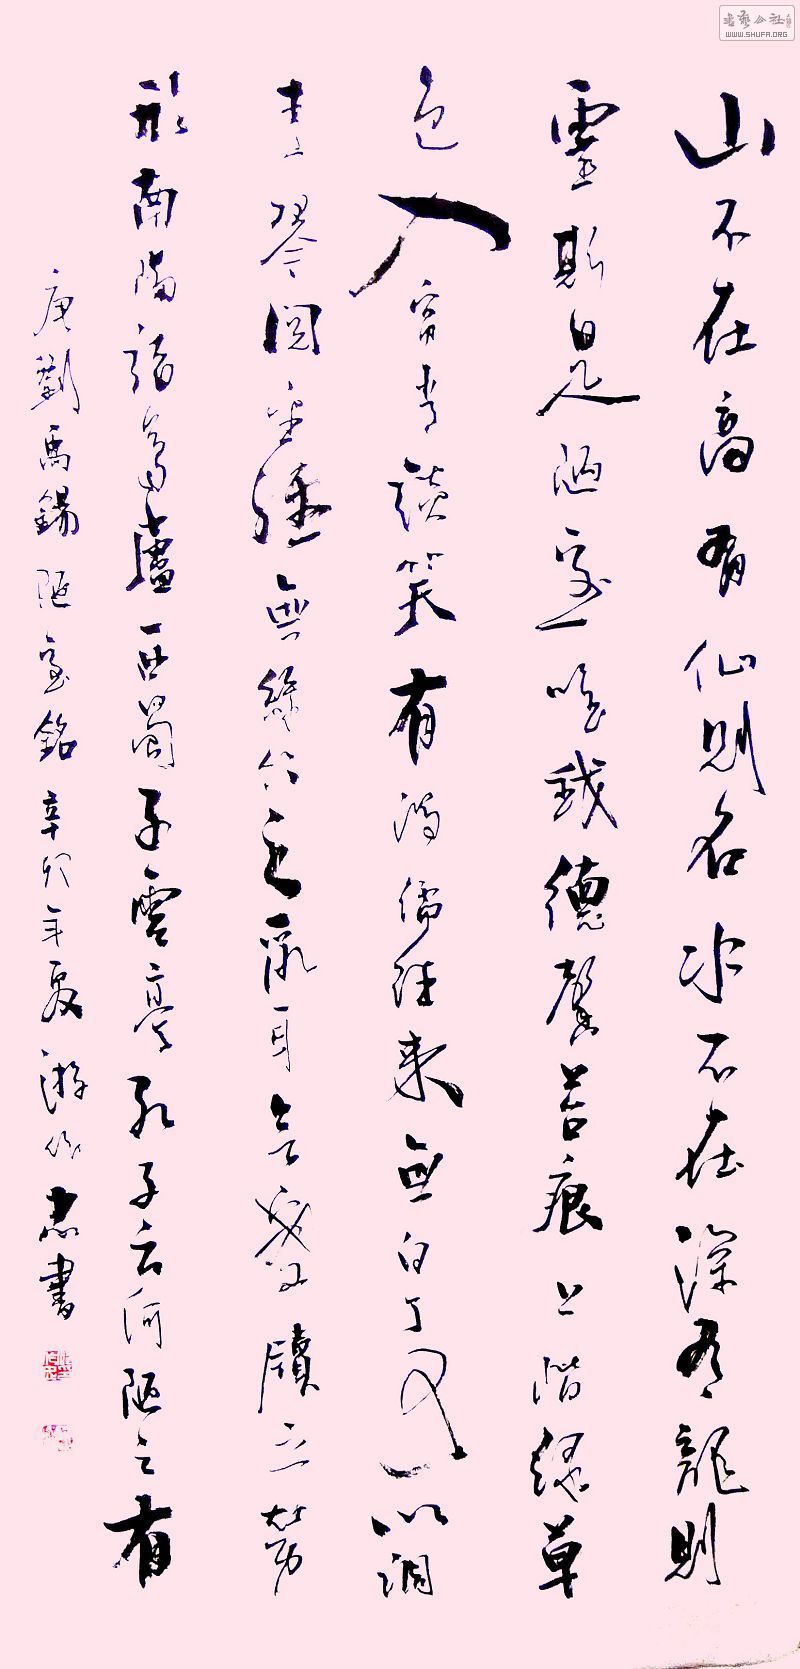 書藝公社
WWW.SHUFA.ORG
山不在高有仙則名水不在深有龍則
靈斯是陋室唯我德馨苔痕上階綠草
色入帘青談笑有鴻儒往來無白丁可以調
素琴閱金經無絲竹之亂耳無案牘之勞
形南陽諸葛廬西蜀子雲亭孔子云何陋之有
唐劉禹錫陋室銘辛卯年夏游忠書